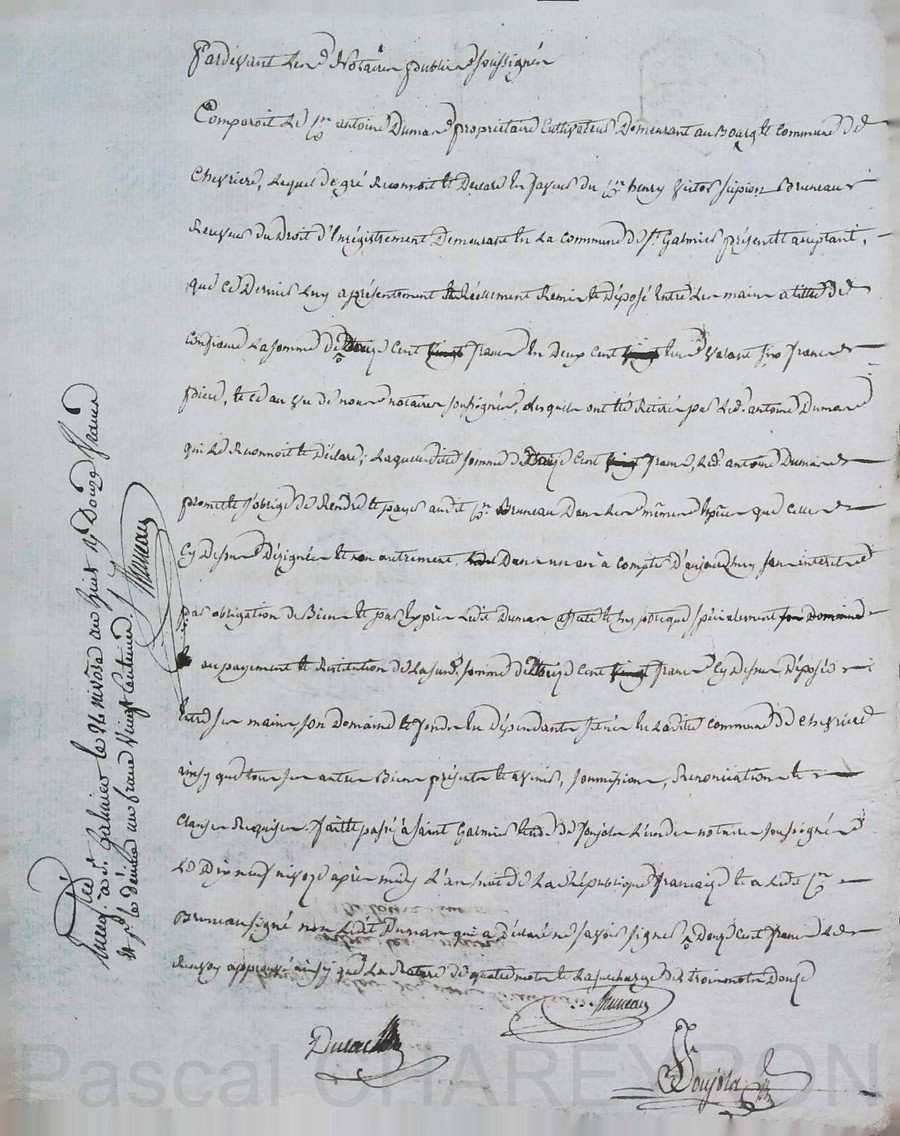 Pardevant Les Notaires publics soussignés
Comparoit Le Cn antoine Dumas propriétaire Cultivateur Demeurant au Bourg et commune de
Chevrieres, Lequel de gré Reconnoit et Declare En faveur du Cn henry Victor scipion Bruneau
Receveur du Droit d'Enregistrement Demeurant En La Commune de St. Galmier présent et acceptant,
que ce Dernier Luy a présentement Réellement Remis et Déposé Entre Les mains a titre de
confiance La somme de Douze Cent vingt francs En Deux Cent vingt Ecus Valant six francs
piece, et ce au vu de nous notaires soussignés, Lesquels ont été Retirés par Led. antoine Dumas
qui Le Reconnoit et Déclare; Laquelle ditte somme de Douze Cent vingt francs, Led. antoine Dumas
promet et s'oblige de Rendre et payer audit Cn Bruneau Dans Les mêmes Espèces que celles
Cy Dessus Désignées et non autrement, Dans un an à compter D'aujourd'huy sans interet et
par obligation de Biens et par Exprès Ledit Dumas affecte et hypotheque spécialement son Domaine
au payement et Restitution de La susd. somme de Douze Cent vingt francs Cy Dessus Déposée
Entre ses mains, son Domaine et fonds En dépendants situés En Ladite Commune de Chevrieres
ainsy que tous ses autres Biens présents et avenirs, soumissions, Renonciations et
Clauses Requises. fait et passé à Saint Galmier Etude de Ponjola L'un des notaires soussignés
Le Dix neuf nivoze après midy L'an huit de La République francaise et a Ledit Cn
Bruneau signé non Ledit Dumas qui a Déclaré ne savoir signer Douze Cent francs Les
Renvoy approuvé ainsy que La Rature de quatre mots et La surcharge de trois mots Douze
Bruneau
Dulac
Ponjola
Enregé à St. Galmier le 26 nivose an huit R Douze francs
et pr le dixieme un franc vingt Centimes
Bruneau
Pascal CHAREYRON